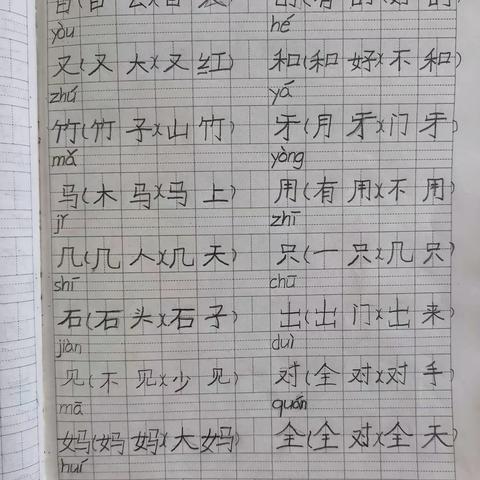 yòu hé
又(又 大)(又 红) 和(和 好)(不 和)
zhú yá
竹(竹 子)(山 竹) 牙(月 牙)(门 牙)
mǎ yòng
马(木 马)(马 上) 用(有 用)(不 用)
jǐ zhī
几(几 人)(几 天) 只(一 只)(几 只)
shí chū
石(石 头)(石 子) 出(出 门)(出 来)
jiàn duì
见(不 见)(少 见) 对(全 对)(对 手)
mā quán
妈(妈 妈)(大 妈) 全(全 对)(全 天)
huí